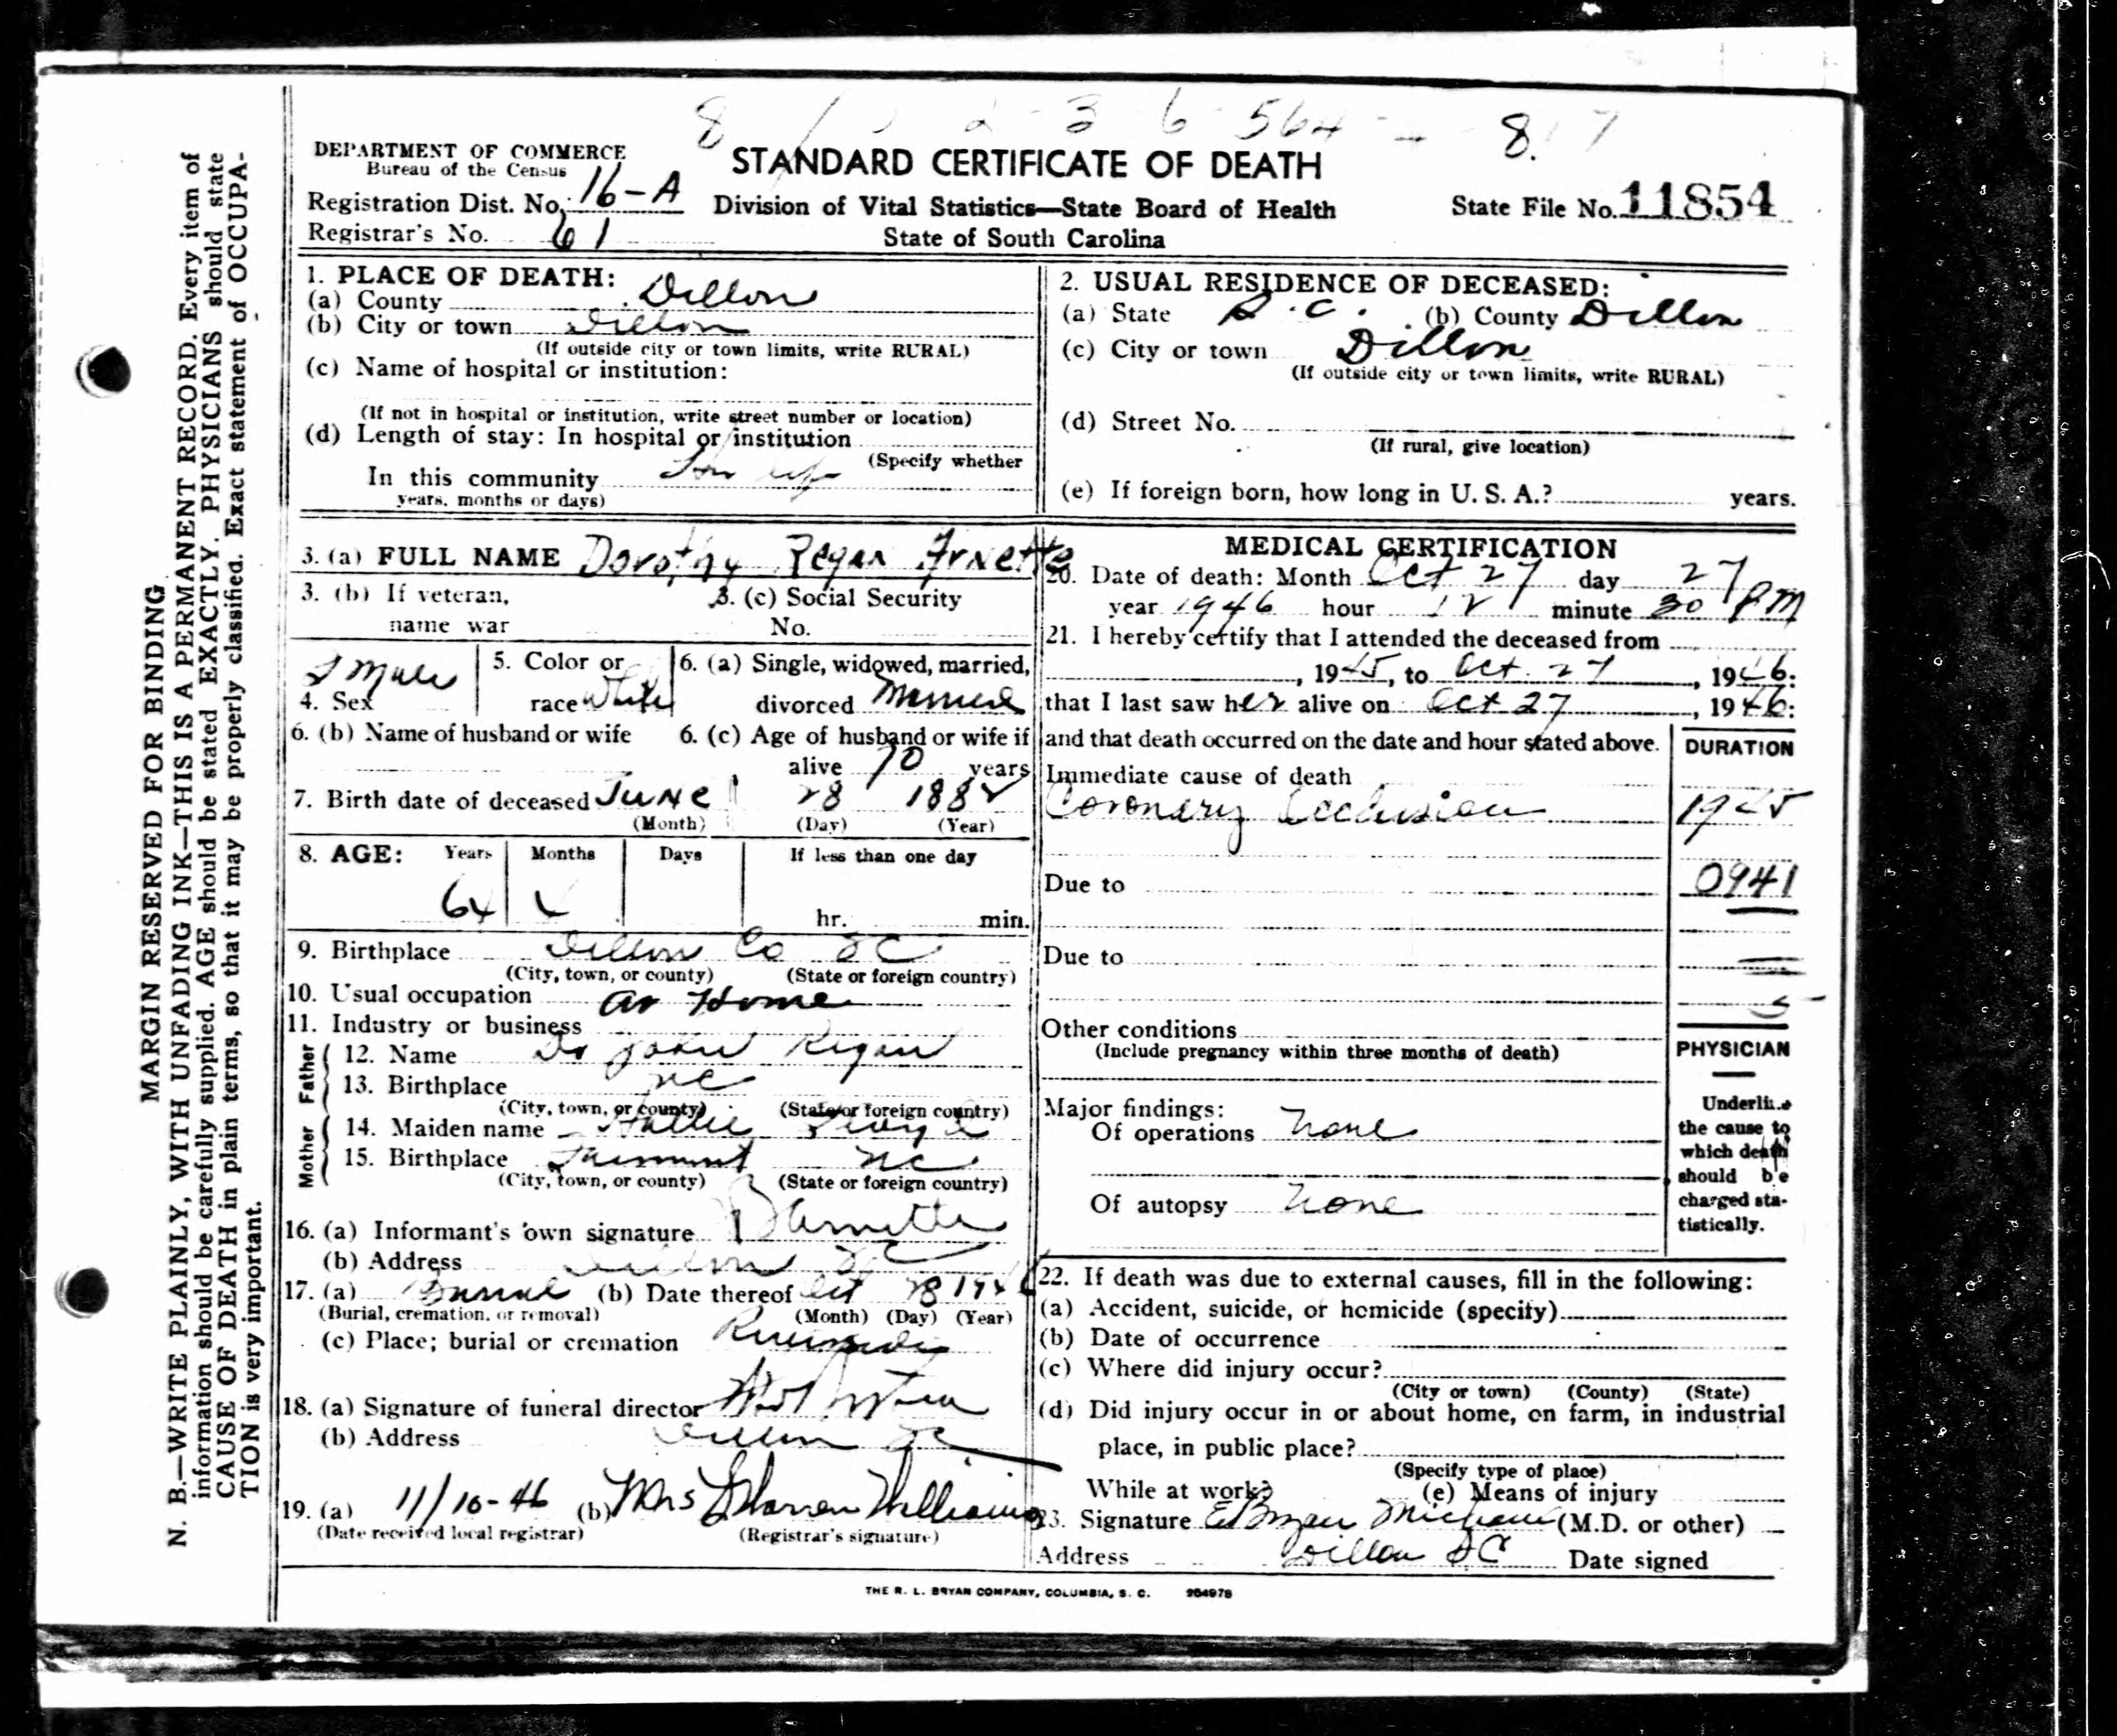 8 2 - 3 6 564 - - 8. 7
DEPARTMENT OF COMMERCE
Bureau of the Census
STANDARD CERTIFICATE OF DEATH
Registration Dist. No. 16-A
Division of Vital Statistics—State Board of Health
State File No. 11854
Registrar's No. 61
State of South Carolina
MARGIN RESERVED FOR BINDING
N. B.—WRITE PLAINLY, WITH UNFADING INK—THIS IS A PERMANENT RECORD. Every item of
information should be carefully supplied. AGE should be stated EXACTLY. PHYSICIANS should state
CAUSE OF DEATH in plain terms, so that it may be properly classified. Exact statement of OCCUPA-
TION is very important.
1. PLACE OF DEATH:
(a) County Dillon
(b) City or town Dillon
(If outside city or town limits, write RURAL)
(c) Name of hospital or institution:
(If not in hospital or institution, write street number or location)
(d) Length of stay: In hospital or institution
(Specify whether
In this community
years, months or days)
2. USUAL RESIDENCE OF DECEASED:
(a) State S.C. (b) County Dillon
(c) City or town Dillon
(If outside city or town limits, write RURAL)
(d) Street No.
(If rural, give location)
(e) If foreign born, how long in U. S. A.? years.
3. (a) FULL NAME Dorothy Regan Arnette
3. (b) If veteran,
name war
3. (c) Social Security
No.
4. Sex
5. Color or
race White
6. (a) Single, widowed, married,
divorced Married
6. (b) Name of husband or wife
6. (c) Age of husband or wife if
alive 70 years
7. Birth date of deceased June 28 1882
(Month) (Day) (Year)
8. AGE: Years Months Days If less than one day
64
hr. min.
9. Birthplace Dillon Co SC
(City, town, or county) (State or foreign country)
10. Usual occupation at Home
11. Industry or business
Father
12. Name Dr John Regan
13. Birthplace NC
(City, town, or county) (State or foreign country)
Mother
14. Maiden name Hallie
15. Birthplace Fairmont NC
(City, town, or county) (State or foreign country)
16. (a) Informant's own signature Arnette
(b) Address Dillon SC
17. (a) Burial (b) Date thereof Oct 28 1946
(Burial, cremation, or removal) (Month) (Day) (Year)
(c) Place; burial or cremation Riverside
18. (a) Signature of funeral director
(b) Address Dillon SC
19. (a) 11/10-46 (b) Mrs Warren Williams
(Date received local registrar) (Registrar's signature)
MEDICAL CERTIFICATION
20. Date of death: Month Oct 27 day 27
year 1946 hour 12 minute 30 PM
21. I hereby certify that I attended the deceased from
, 1945, to Oct. 27, 1946:
that I last saw her alive on Oct 27, 1946:
and that death occurred on the date and hour stated above.
DURATION
Immediate cause of death
Coronary Occlusion 1945
Due to 0941
Due to
Other conditions
(Include pregnancy within three months of death)
PHYSICIAN
Underline
the cause to
which death
should be
charged sta-
tistically.
Major findings:
Of operations None
Of autopsy None
22. If death was due to external causes, fill in the following:
(a) Accident, suicide, or homicide (specify)
(b) Date of occurrence
(c) Where did injury occur?
(City or town) (County) (State)
(d) Did injury occur in or about home, on farm, in industrial
place, in public place?
(Specify type of place)
While at work? (e) Means of injury
23. Signature (M.D. or other)
Address Dillon SC Date signed
THE R. L. BRYAN COMPANY, COLUMBIA, S. C. 264978